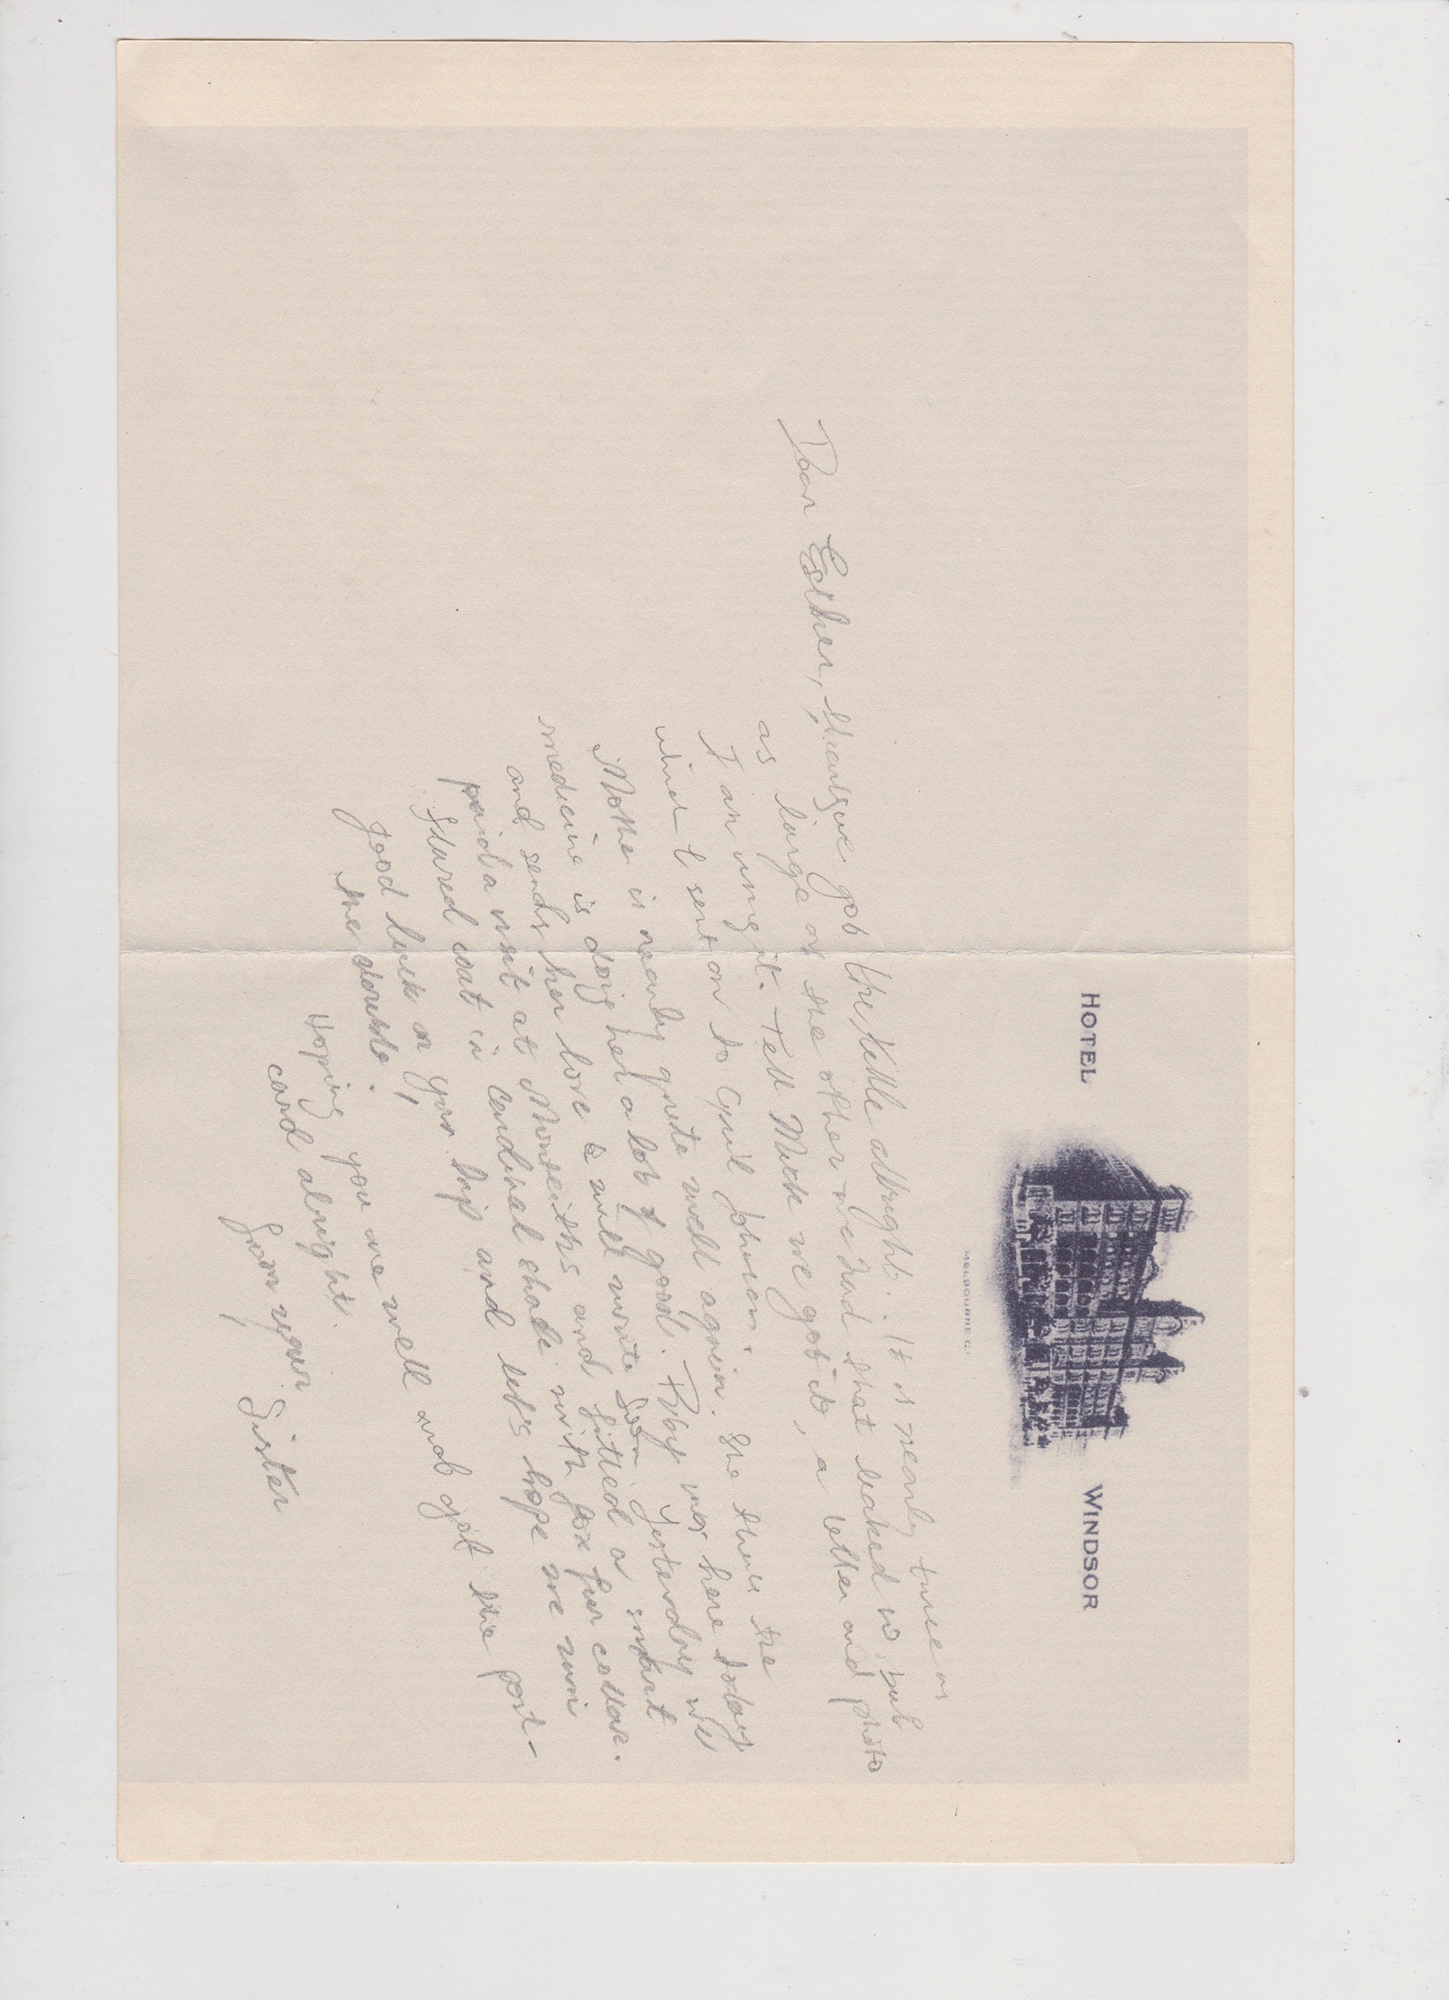 HOTEL WINDSOR
MELBOURNE C.1
Dear Esther, got the kettle allright. It is nearly twice as
as large as the other we had that leaked w.
I am using it. Tell Mick we got it, a letter and photo
which I sent on to Johnson.
Mother is nearly quite well again. She the
medicine is doing her a lot of good. was here today
and sends her love & will write soon. Yesterday we
paid a visit at Monteiths and fitted a smart
flared coat in cardinal shade with fox fur collar.
Good luck on your trip and let's hope we win
the double.
Hoping you are well and got the post-
card alright.
from your Sister